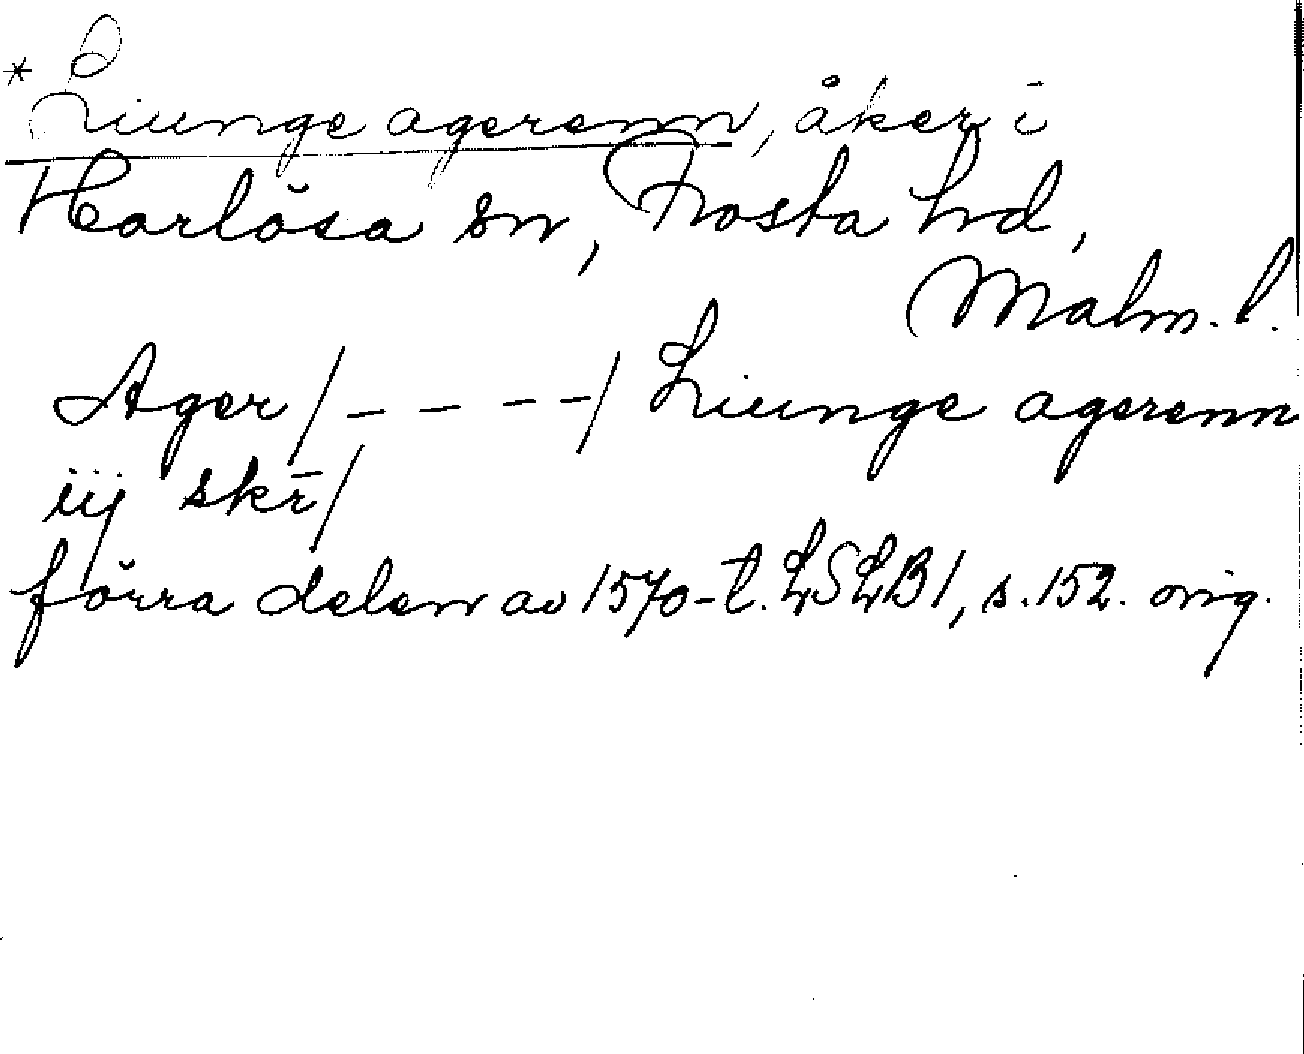 * Liunge agerenn, åker i
Harlösa sn, Frosta hd,
Malm. l.
Ager /- - - -/ Liunge agerenn
iij skr̄/
förra delen av 1570-t. LSLB1, s. 152. orig.